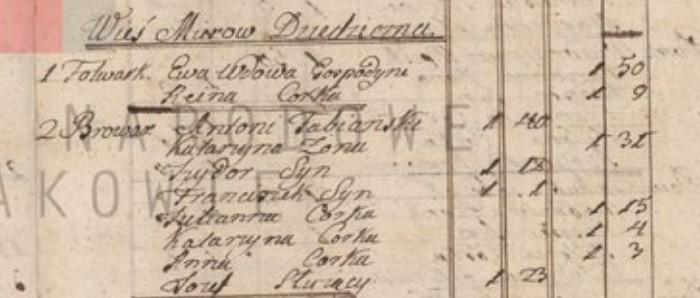 Wieś Mirow Dziedziczna.
1 Folwark. Ewa Wdowa Gospodyni 1 50
Reina Corka 1 9
2 Browar Antoni Fabianski 1 40
Katarzyna Zona 1 31
Izydor Syn 1 18
Franciszek Syn 1 1
Julianna Corka 1 15
Katarzyna Corka 1 4
Anna Corka 1 3
Jozef Służący 1 23
NARODOWE
AKOWIE